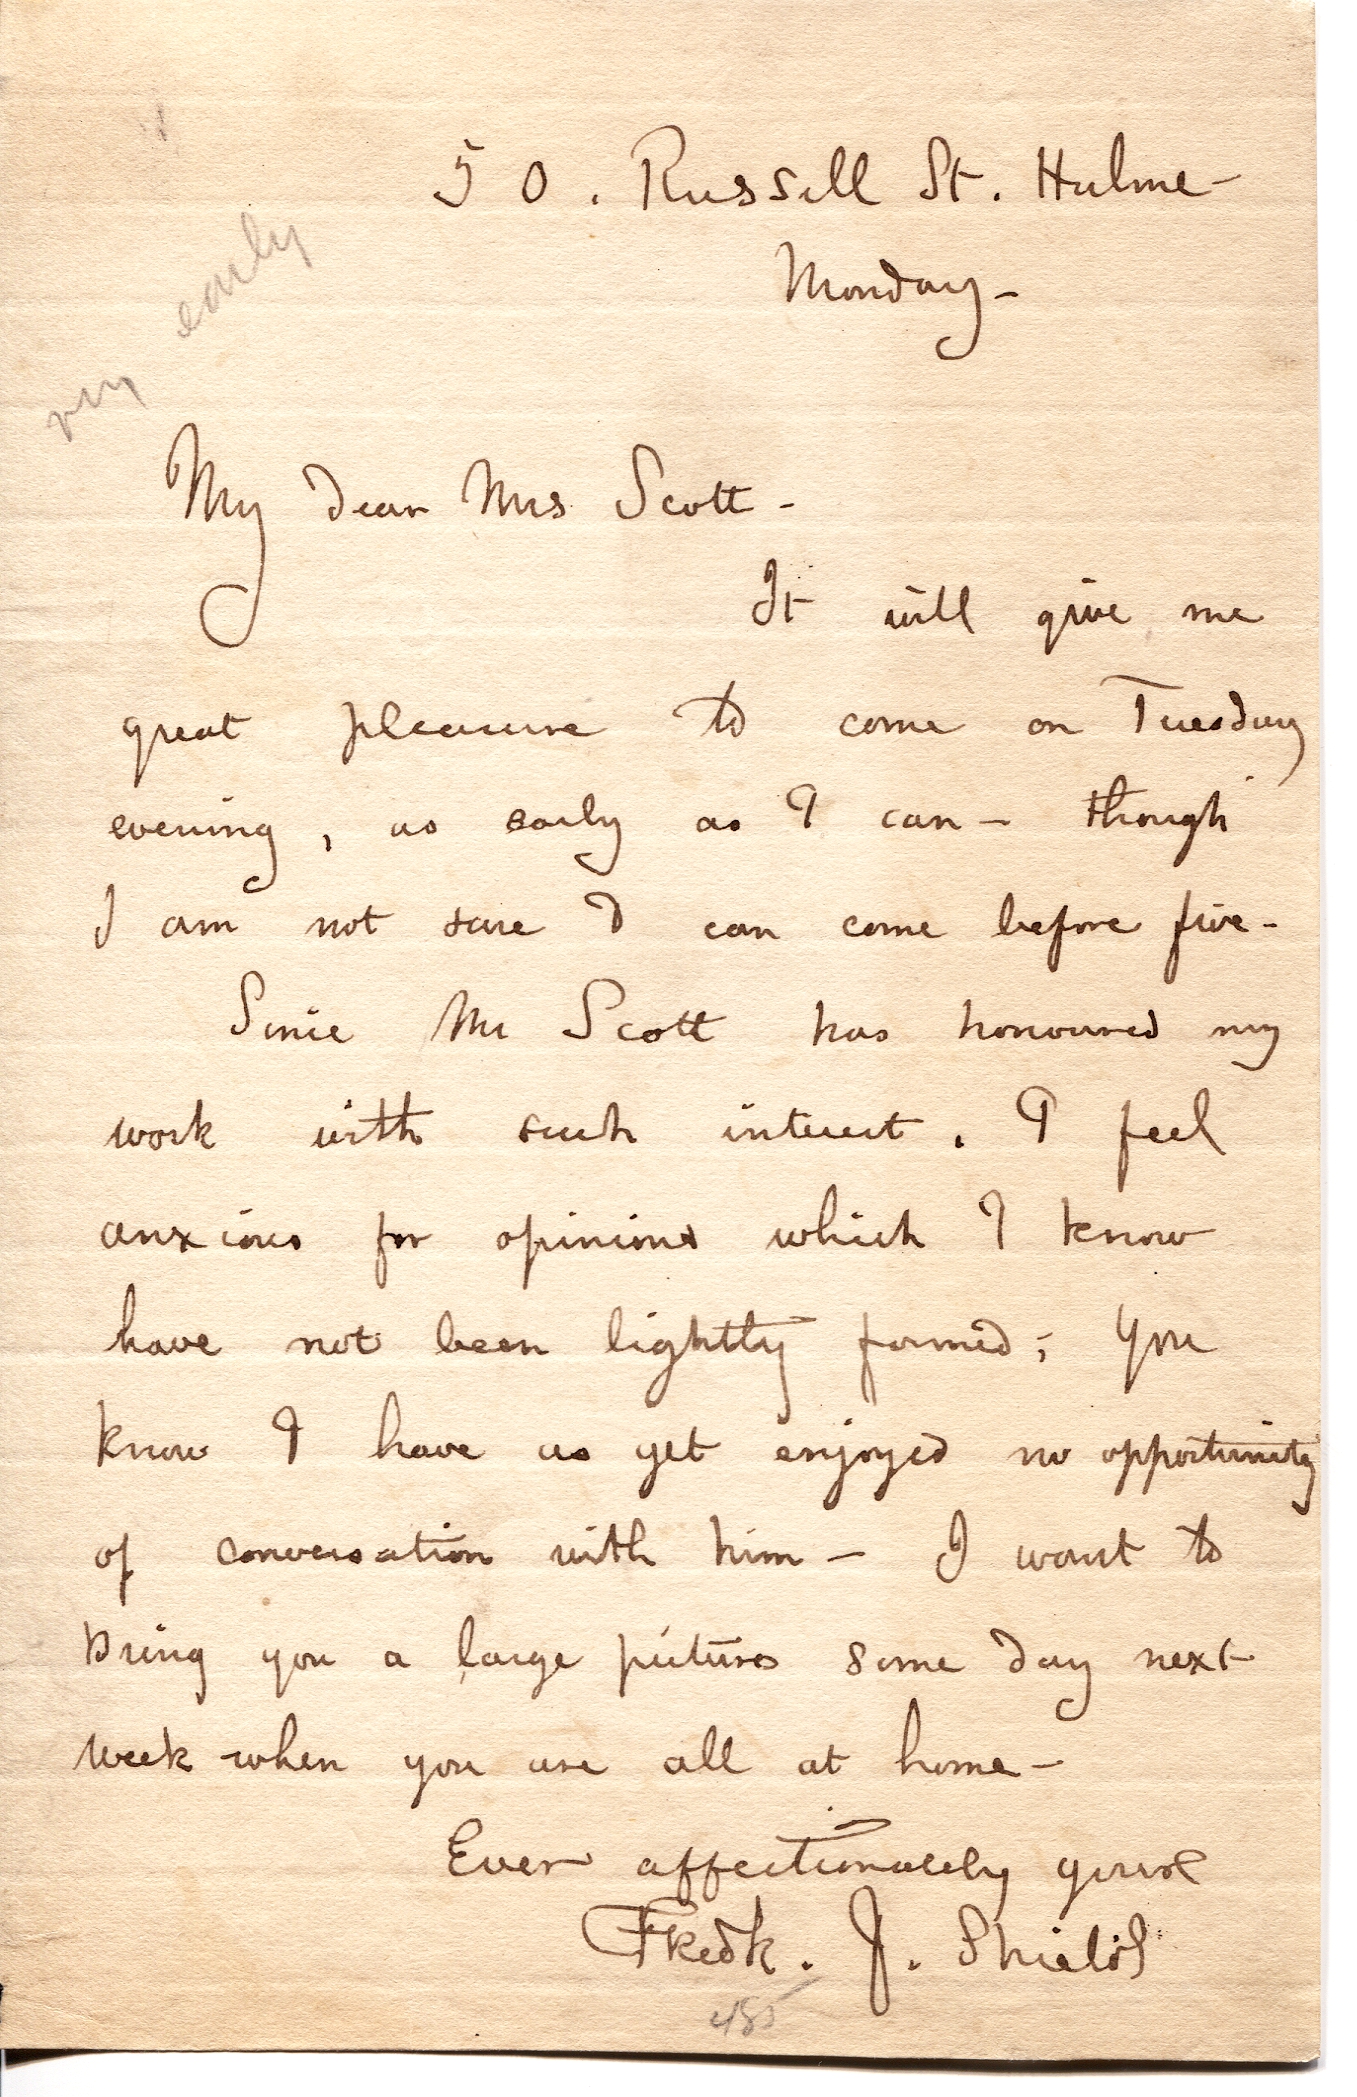 50. Russell St. Hulme-
Monday-
very early
My dear Mrs Scott-
It will give me
great pleasure to come on Tuesday
evening, as early as I can- though
I am not sure I can come before five-
Since Mr Scott has honoured my
work with such interest. I feel
anxious for opinions which I know
have not been lightly formed; you
know I have as yet enjoyed no opportunity
of conversation with him- I want to
bring you a large picture some day next
week when you are all at home-
Ever affectionately yours
Fredk. J. Shields
485